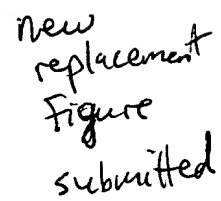 new
replacement
Figure
submitted